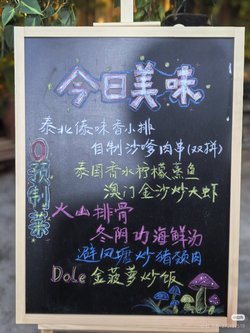 今日美味
泰北傣味香小排
自制沙嗲肉串(双拼)
泰国香水柠檬蒸鱼
澳门金沙炒大虾
火山排骨
冬阴功海鲜汤
避风塘炒猪颈肉
Dole 金菠萝炒饭
0预制菜